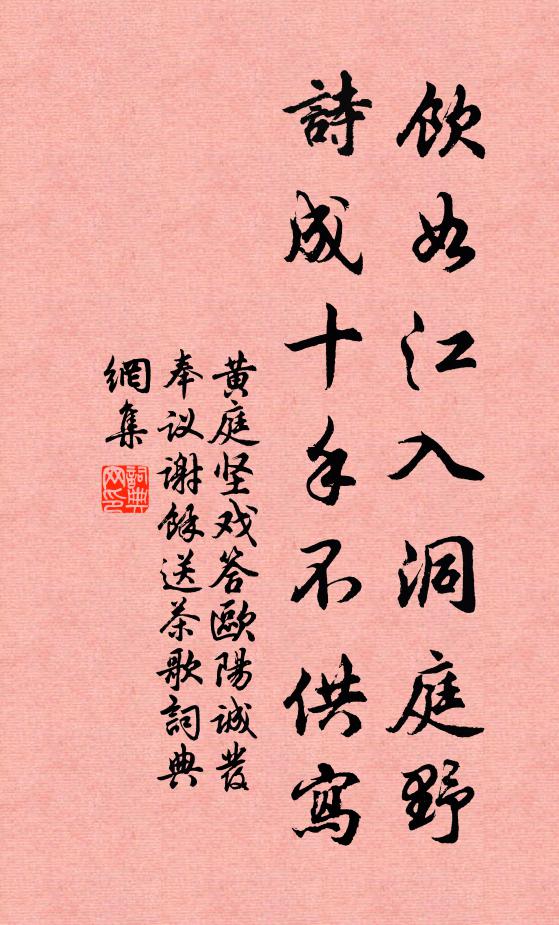 飲如江入洞庭野
詩成十手不供寫
黄庭坚戏答歐陽诚發
奉议谢餘送茶歌詞典
網集
詞典
网印